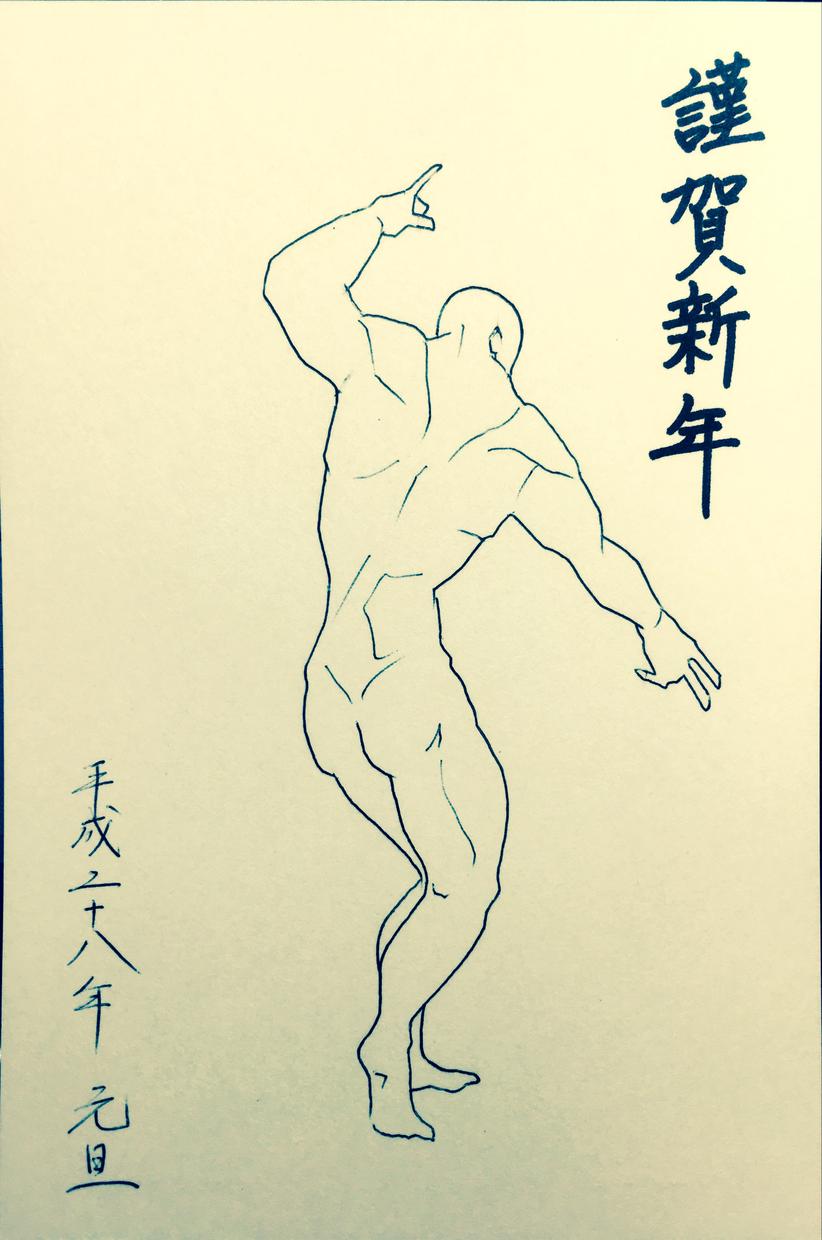 謹賀新年
平成二十八年 元旦